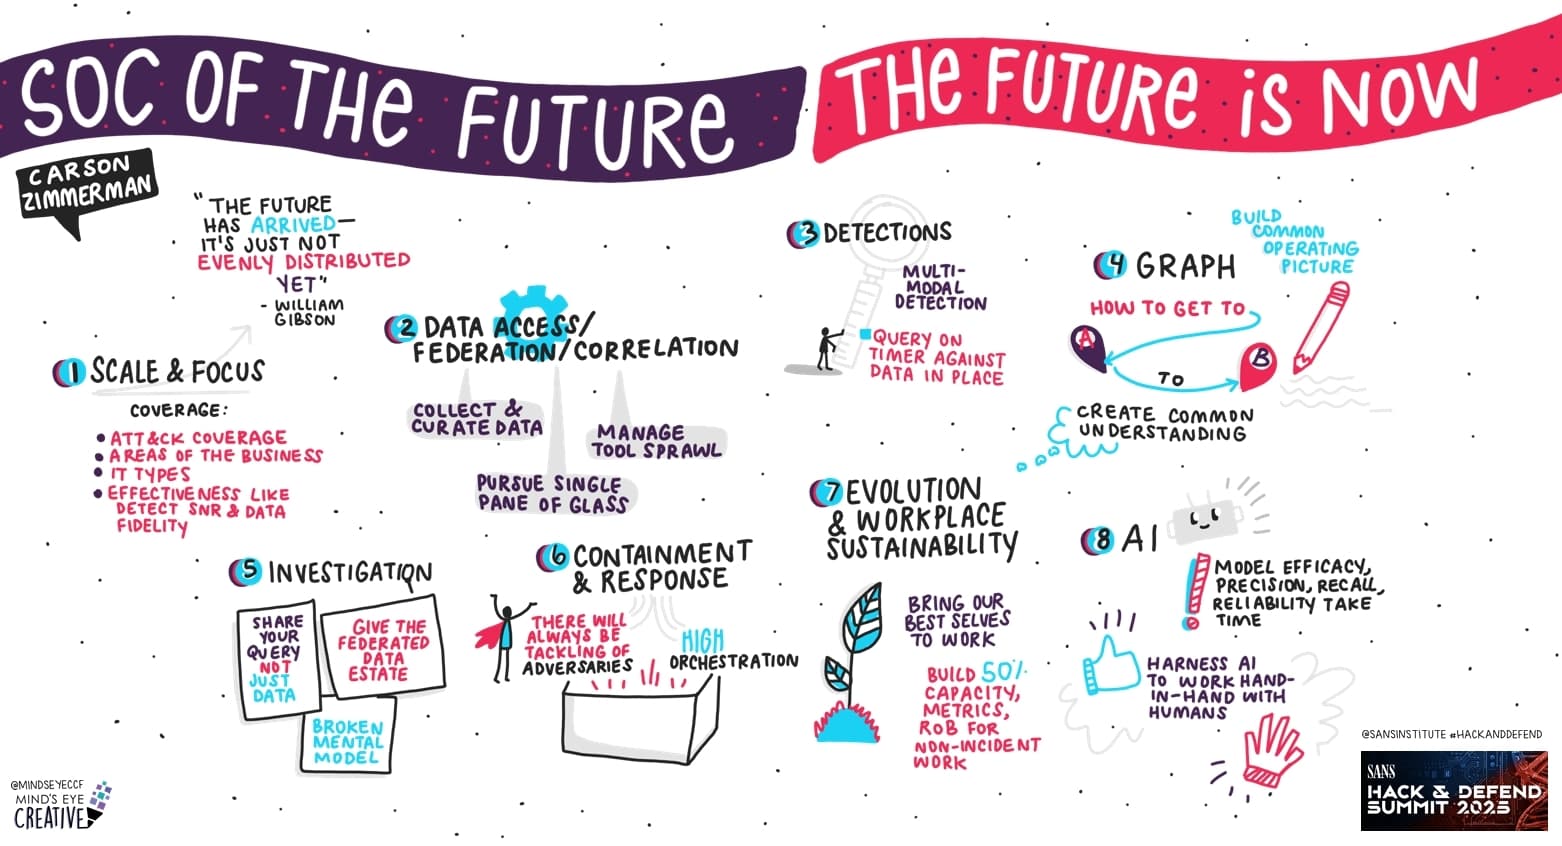 SOC OF THE FUTURE
THE FUTURE IS NOW
CARSON
ZIMMERMAN
"THE FUTURE
HAS ARRIVED—
IT'S JUST NOT
EVENLY DISTRIBUTED
YET"
- WILLIAM
GIBSON
1 SCALE & FOCUS
COVERAGE:
• ATT&CK COVERAGE
• AREAS OF THE BUSINESS
• IT TYPES
• EFFECTIVENESS LIKE
DETECT SNR & DATA
FIDELITY
2 DATA ACCESS/
FEDERATION/CORRELATION
COLLECT &
CURATE DATA
MANAGE
TOOL SPRAWL
PURSUE SINGLE
PANE OF GLASS
3 DETECTIONS
MULTI-
MODAL
DETECTION
QUERY ON
TIMER AGAINST
DATA IN PLACE
4 GRAPH
BUILD
COMMON
OPERATING
PICTURE
HOW TO GET TO
A
TO
B
CREATE COMMON
UNDERSTANDING
5 INVESTIGATION
SHARE
YOUR
QUERY
NOT
JUST
DATA
GIVE THE
FEDERATED
DATA
ESTATE
BROKEN
MENTAL
MODEL
6 CONTAINMENT
& RESPONSE
THERE WILL
ALWAYS BE
TACKLING OF
ADVERSARIES
HIGH
ORCHESTRATION
7 EVOLUTION
& WORKPLACE
SUSTAINABILITY
BRING OUR
BEST SELVES
TO WORK
BUILD 50%
CAPACITY,
METRICS,
ROB FOR
NON-INCIDENT
WORK
8 AI
MODEL EFFICACY,
PRECISION, RECALL,
RELIABILITY TAKE
TIME
HARNESS AI
TO WORK HAND-
IN-HAND WITH
HUMANS
@MINDSEYECCF
MIND'S EYE
CREATIVE
@SANSINSTITUTE #HACKANDDEFEND
SANS
HACK & DEFEND
SUMMIT 2025